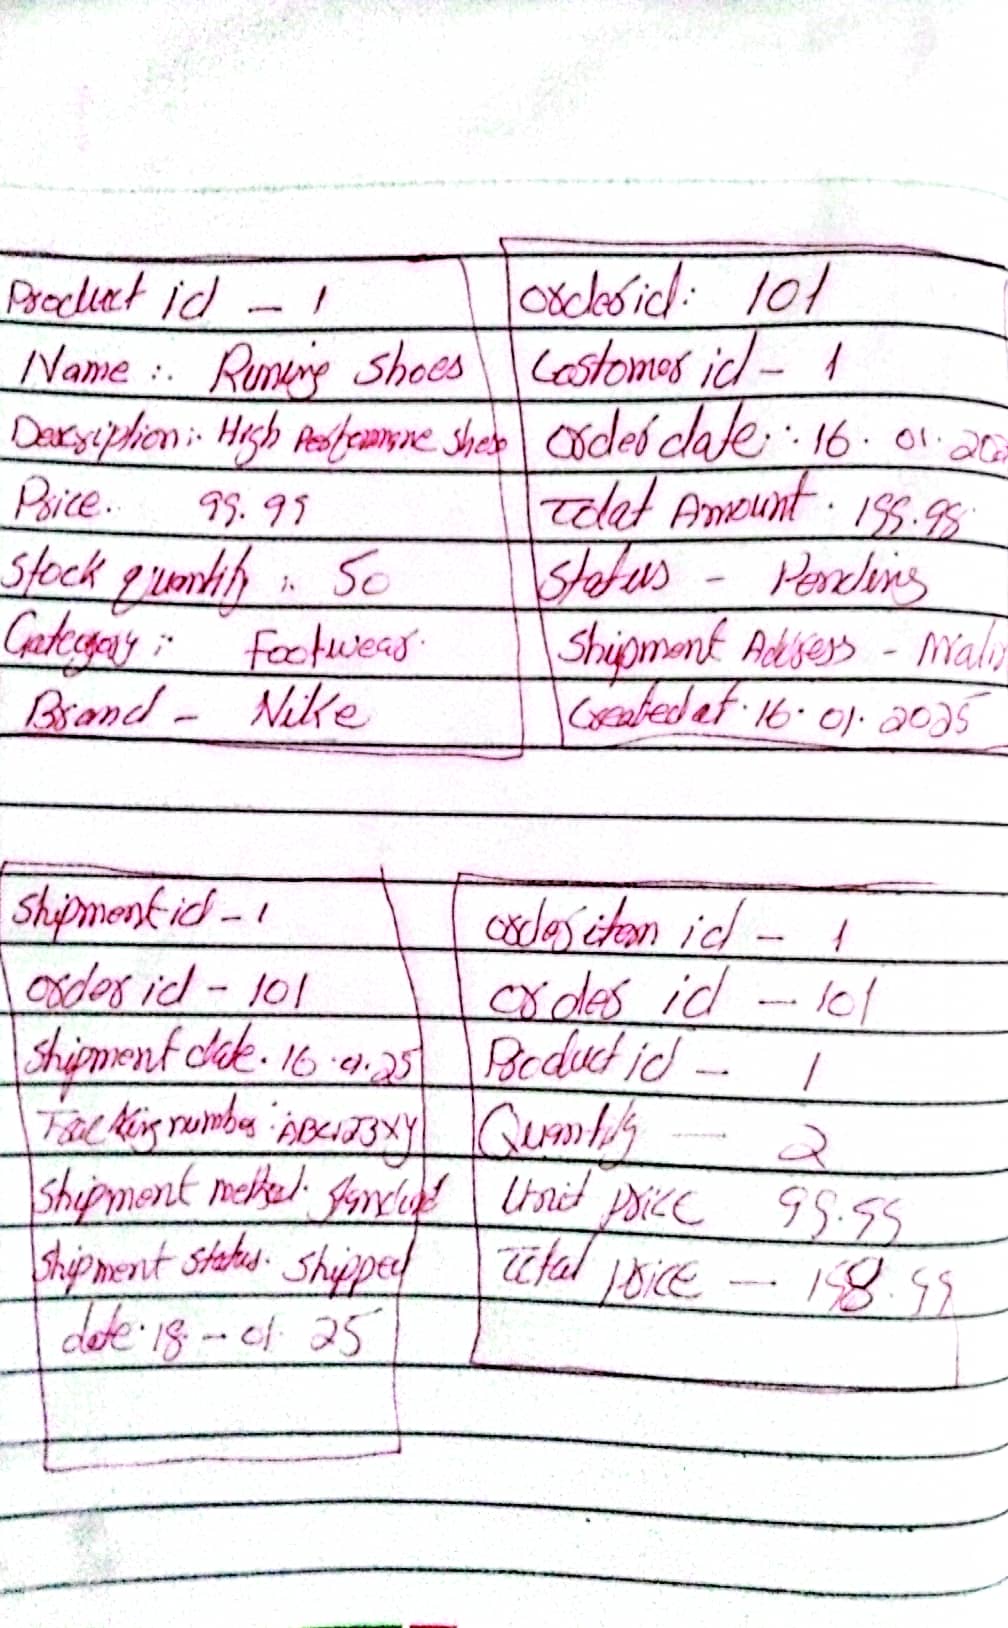 Product id - 1
Name :. Runing Shoes
Description :. High Performance Shoes
Price. 99.99
Stock quantity :. 50
Category :. Footwear.
Brand - Nike
Order id: 101
Costomer id - 1
Order date :. 16. 01. 202
Total Amount. 199.98
Status - Pending
Shipment Address - Main
Created at. 16. 01. 2025
Shipment id - 1
Order id - 101
Shipment date. 16.01.25
Tracking number. ABC123XY
Shipment method. Standard
Shipment Status. Shipped
date. 18 - 01. 25
Order item id - 1
Order id - 101
Product id - 1
Quantity - 2
Unit price 99.99
Total price - 198.99